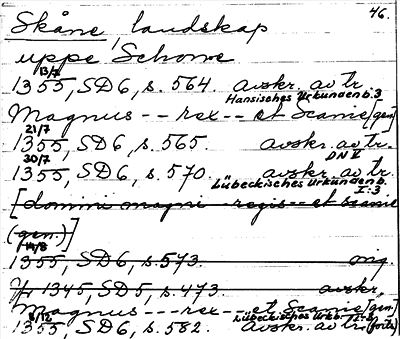 46.
Skåne, landskap
uppe Schone
13/7
1355, SD6, s. 564. avskr. av tr.
Hansisches Urkundenb. 3
Magnus -- rex -- et Scanie [gen]
21/7
1355, SD6, s. 565. avskr. av tr.
DN V
30/7
1355, SD6, s. 570. avskr. av tr.
Lübeckisches Urkundenb.
I:3
[domini magni regis -- et scanie
(gen.)]
14/8
1355, SD6, s. 573. orig.
1345, SD5, s. 473. avskr.
Magnus -- rex -- et Scanie [gen]
8/12 Lübeckisches Urkb.
1355, SD6, s. 582. avskr. av tr. (forts)